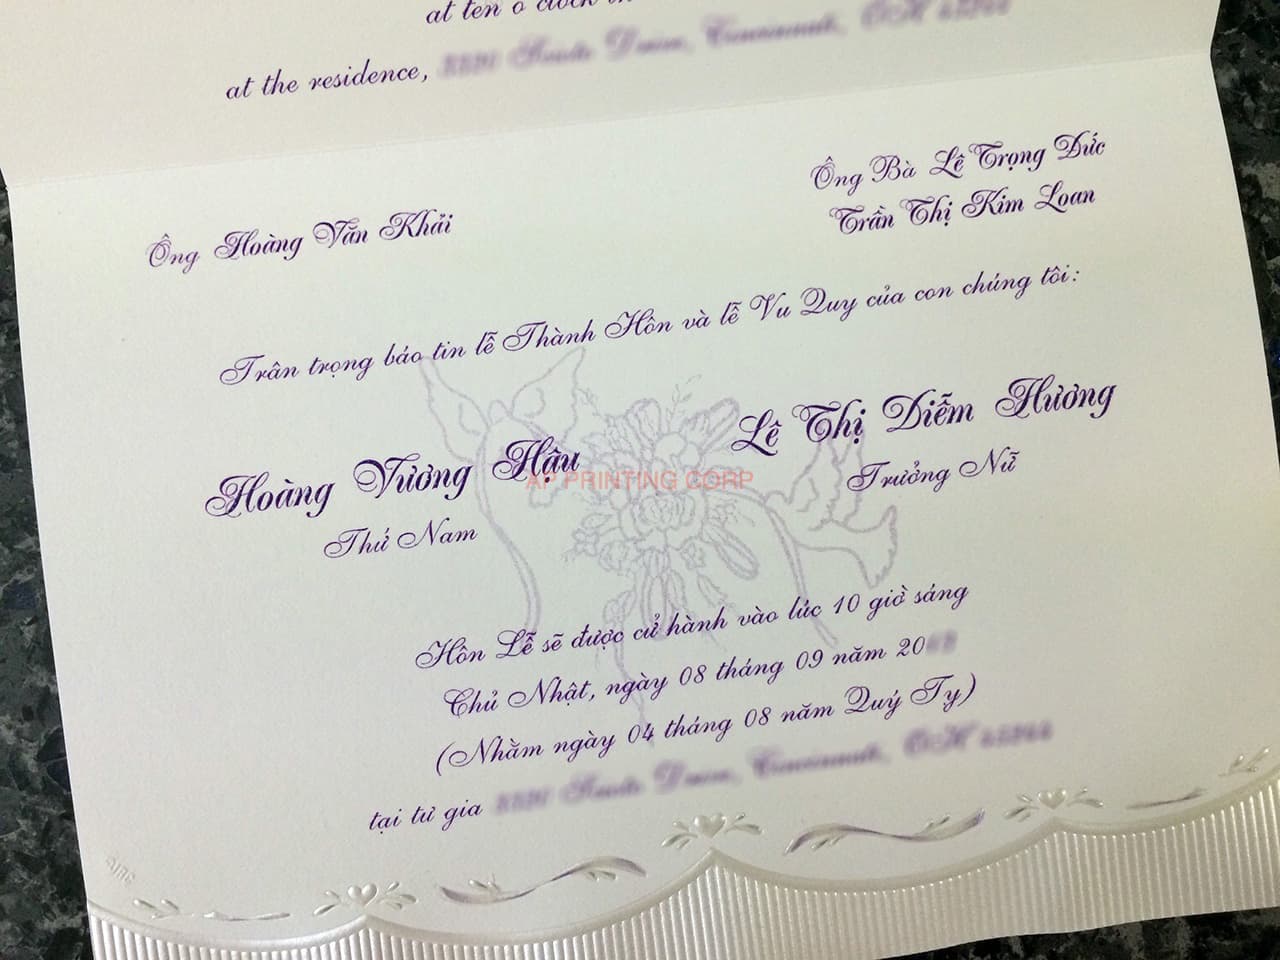 at ten o'clock in
at the residence,
Ông Hoàng Văn Khải
Ông Bà Lê Trọng Đức
Trần Thị Kim Loan
Trân trọng báo tin lễ Thành Hôn và lễ Vu Quy của con chúng tôi:
Hoàng Vương Hậu
Thứ Nam
Lê Thị Diễm Hương
Trưởng Nữ
AP PRINTING CORP
Hôn Lễ sẽ được cử hành vào lúc 10 giờ sáng
Chủ Nhật, ngày 08 tháng 09 năm 20
(Nhằm ngày 04 tháng 08 năm Quý Tỵ)
tại tư gia